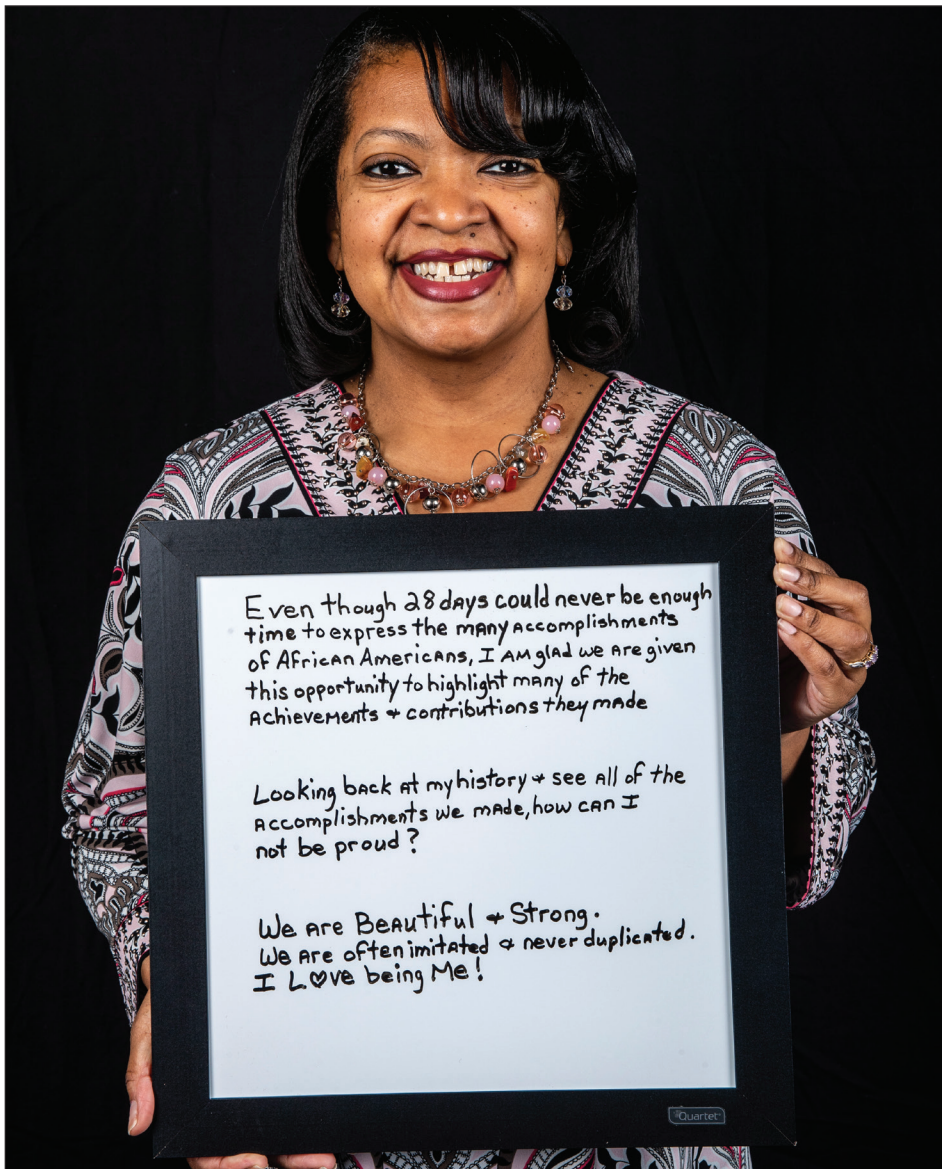 Even though 28 days could never be enough
time to express the many accomplishments
of African Americans, I am glad we are given
this opportunity to highlight many of the
achievements & contributions they made
Looking back at my history & see all of the
accomplishments we made, how can I
not be proud?
We are Beautiful & Strong.
We are often imitated & never duplicated.
I L♡ve being Me!
Quartet